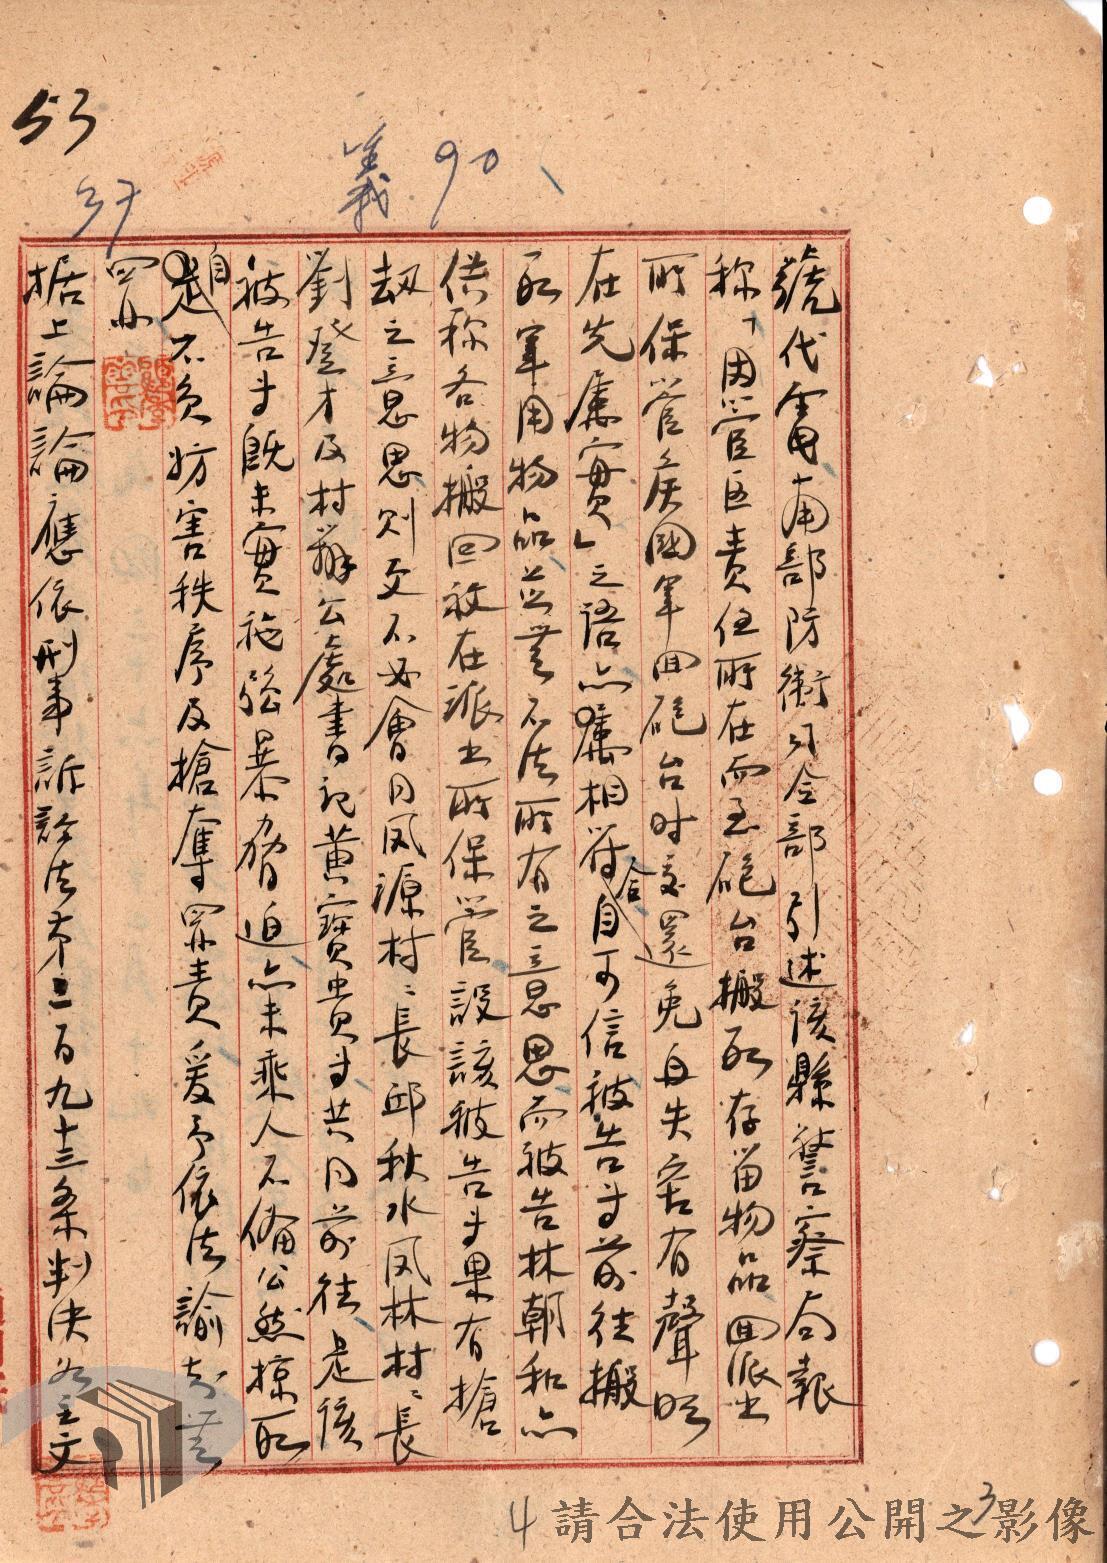 53
37
義 90
號代電南部防衛司令部引述該縣警察局報
称「因管區責任所在而至砲台搬取存留物品回派出
所保管俟國軍回砲台时交還免且失窃有聲明
在先屬實」之語亦屬相符合自可信被告等前往搬
取軍用物品並無不法所有之意思而被告林朝和亦
供称各物搬回放在派出所保管設該被告等果有搶
劫之意思則更不必會同凤源村村長邱秋水凤林村村長
劉登才及村辦公處書記黃寶貴等共同前往是該
被告等既未實施強暴脅迫亦未乘人不備公然掠取
自不負妨害秩序及搶奪罪責爰予依法諭知無
罪
据上論論應依刑事訴訟法第二百九十三条判决如主文
4
3
請合法使用公開之影像